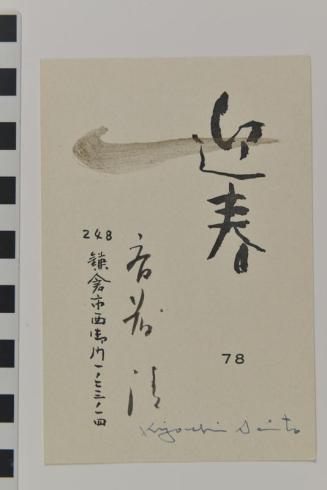 迎春
78
斎藤清
248
鎌倉市西御門一ノ七三ノ一四
Kiyoshi Saito